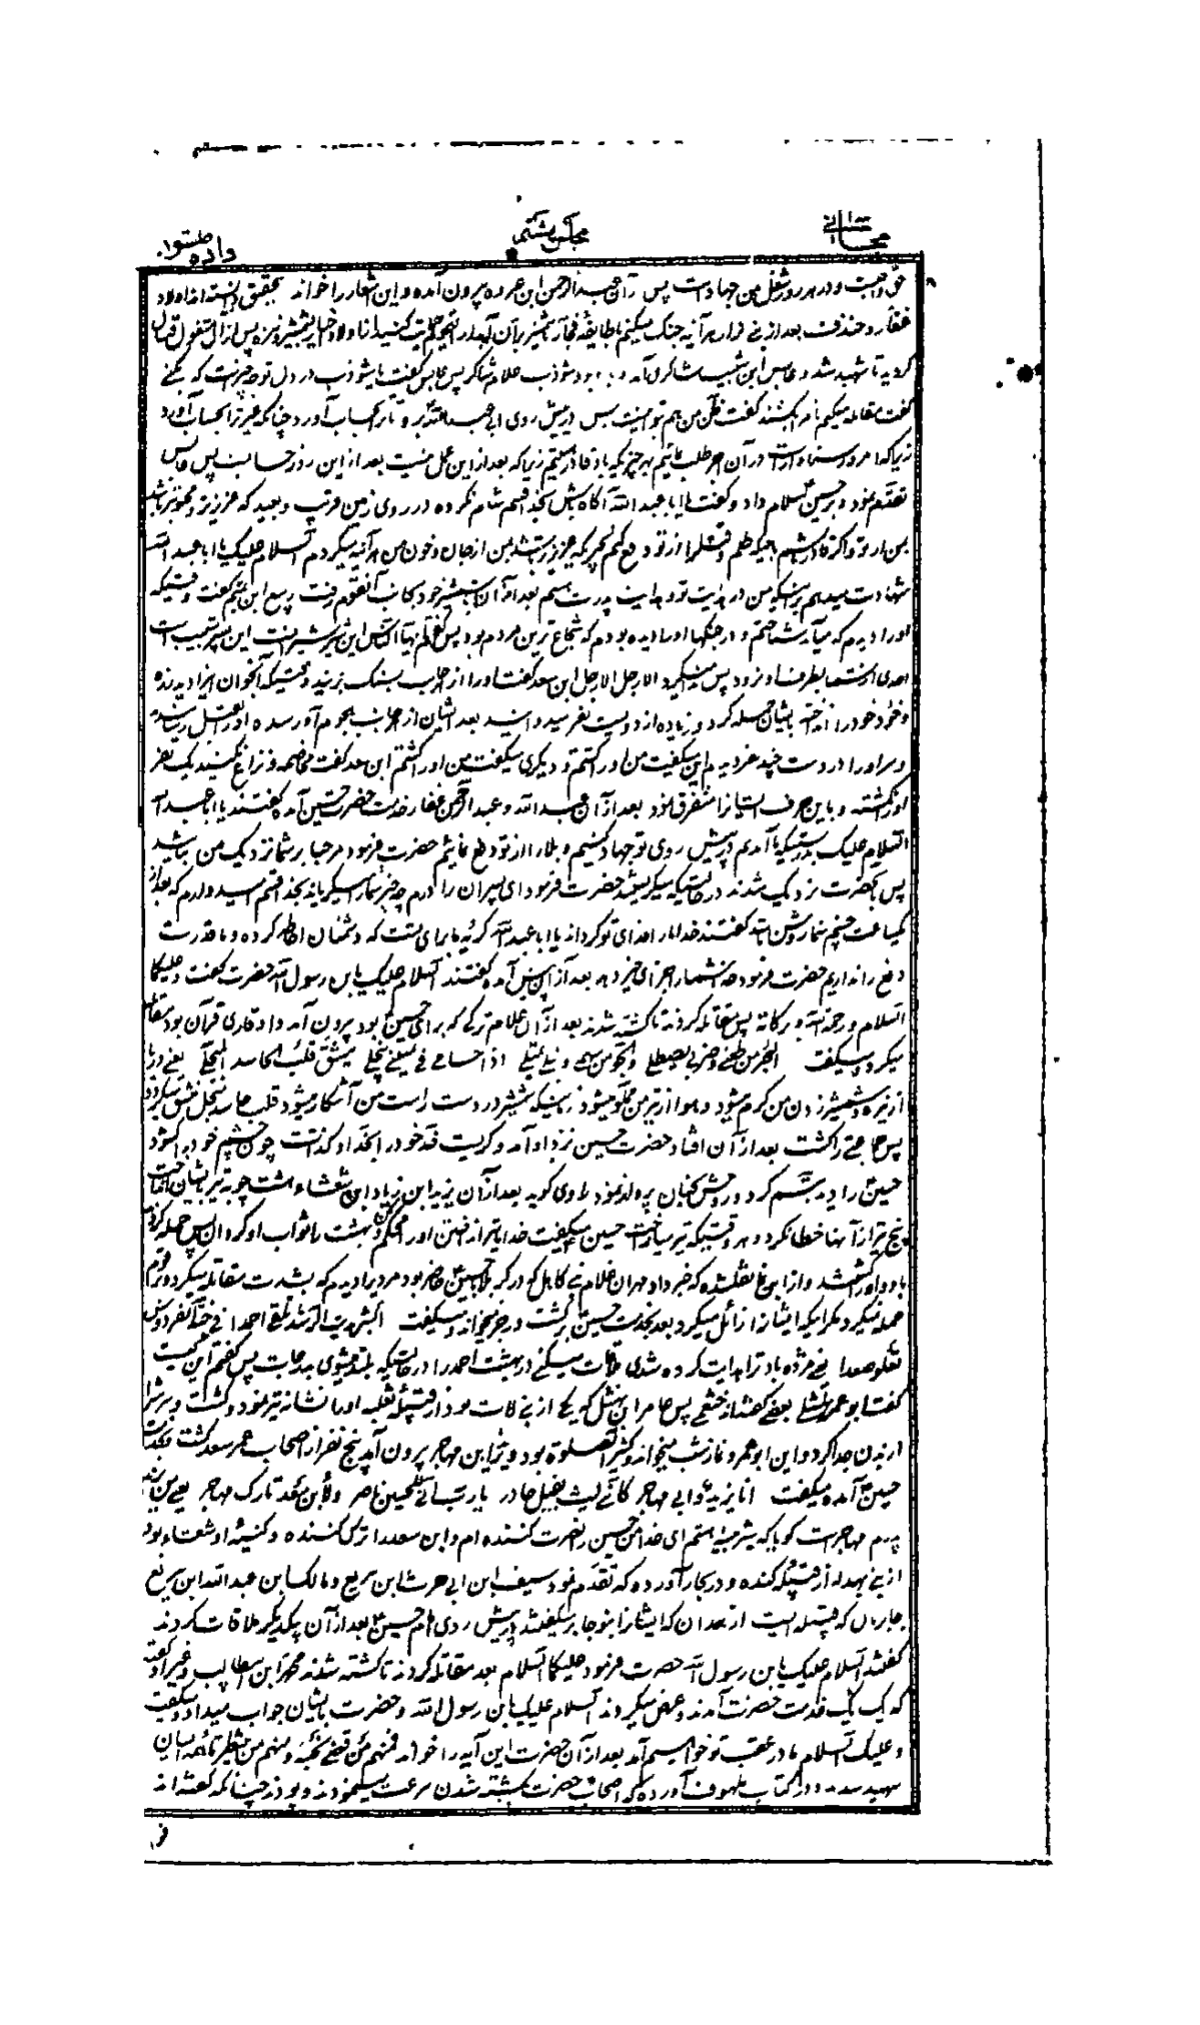 مجلس هشتم
حق واجبت و در هر روز شغل من جهاد است پس از آن عبدالرحمن ابن عروه بیرون آمده و این اشعار را خواند بتحقیق دانسته اند اولاد
غفار و خندف بعد از بنی نزار هر آینه جنک میکنم با طایفه فجار
کردید تا شهید شد و عابس ابن شبیب شاکری آمد و با او بود شوذب غلام شاکر پس عابس گفت یا شوذب در دل تو چه چیز است که
گفت مقاتله میکنم تا مرا بکشند گفت ظن من هم بتو اینست پس در پیش روی ابی عبدالله برو تا ترا بحساب آورد چنانکه غیر ترا بحساب آورد
زیرا که امروز سزاوار است در آن اجر طلب نمائیم بهر چیزیکه باو قادر هستیم زیرا که بعد از این عمل نیست بعد از این روز حسابست پس عابس
تقدم نمود و بر حسین سلام داد و گفت یا ابا عبدالله آگاه باش بخدا قسم شام نکرده در روی زمین قریب و بعید که عزیزتر و محبوبتر باشد
بمن از تو و اگر قادر باشم باینکه ظلم و قتل را از تو دفع کنم بچیزیکه عزیزتر باشد بمن از جان و خون من هر آینه میکردم السلام علیک یا ابا عبدالله
شهادت میدهم بر اینکه من در هدایت تو و هدایت پدرت هستم بعد از آن با شمشیر خود بجانب آنقوم رفت ربیع ابن تمیم گفت وقتیکه
او را دیدم که میآید شناختم و در جنگها او را دیده بودم که شجاع ترین مردم بود پس گفتم ایها الناس این شیر شیرانست این پسر شبیب است
احدی از شما بطرف او نرود پس میگفت الا رجل الا رجل ابن سعد گفت او را از هر جانب بسنک بزنید وقتیکه آنجوان این را دید زره
و خود خود را انداخته بایشان حمله کرد و زیاده از دویست نفر میدوانید بعد ایشان از هر جانب هجوم آورده او را بقتل رسانیدند
و سر او را در دست چند نفر دیدم این میگفت من او را کشتم و دیگری میگفت من او را کشتم ابن سعد گفت مخاصمه و نزاع نکنید یک نفر
او را نکشته و باین حرف ایشانرا متفرق نمود بعد از آن عبدالله و عبدالرحمن غفاری خدمت حضرت حسین آمده گفتند یا ابا عبدالله
السلام علیک بدرستیکه ما آمدیم در پیش روی تو جهاد کنیم و بلا را از تو دفع نمائیم حضرت فرمود مرحبا بر شما نزدیک من بیائید
پس بحضرت نزدیک شدند در حالتیکه میگریستند حضرت فرمود ای پسران برادرم چه چیز شما را میگریاند بخدا قسم امیدوارم که بعد از
یکساعت چشم شما روشن باشد گفتند خدا ما را فدای تو گرداند یا ابا عبدالله گریه ما برای تست که دشمنان احاطه کرده و ما قدرت
دفع را نداریم حضرت فرمود خدا شما را جزای خیر دهد بعد از آن پیش آمده گفتند السلام علیک یا ابن رسول الله حضرت گفت و علیکما
السلام و رحمة الله و برکاته پس مقاتله کردند تا کشته شدند بعد از آن غلام ترکی که برای حسین بود بیرون آمد و او قاری قرآن بود مقاتله
میکرد و میگفت البحر من طعنی و ضربی یصطلی و الجو من سهمی و نبلی یمتلی اذا حسامی فی یمینی ینجلی ینشق قلب الحاسد المبجل یعنی دریا
از نیزه و شمشیر زدن من گرم میشود و هوا از تیر من مملو میشود زمانیکه شمشیر در دست راست من آشکار میشود قلب حاسد مبجل منشق میگردد
پس جماعتی را کشت بعد از آن افتاد حضرت حسین نزد او آمد و گریست و خد خود را بخد او گذاشت چون چشم خود را گشود
حسین را دید تبسم کرد و روحش بجنان پرواز نمود راوی گوید بعد از آن یزید ابن زیاد ابن شعشاء هشت چوبه تیر بایشان انداخت
پنج تیر از آنها خطا نکرد و هر وقتیکه تیر میانداخت حسین میگفت خدایا تیر انداختن او را محکم کن و بهشت را ثواب او گردان پس حمله کردند
باو و او را کشتند
حمله نمیکرد مگر اینکه ایشانرا زائل میکرد بعد بخدمت حسین برگشت و رجز میخواند و میگفت ابشر هدیت الرشد تلقی احمدا فی جنة الفردوس
تعلو صعدا یعنی مژده باد ترا هدایت کرده شدی ملاقات میکنی در بهشت احمد را در حالتیکه بلند میشوی بدرجات پس گفتم این کیست
گفتند ابو عمرو نهشلی بعضی گفتند خثعمی پس عامر ابن نهشل که یکی از بنی لات بود از قبیله ثعلبه او را نشانه تیر نمود و کشت و سرش را
از بدن جدا کرد و این ابو عمرو نماز شب میخواند و کثیر الصلوة بود و یزید ابن مهاجر بیرون آمد پنج نفر از اصحاب عمر سعد کشت و بخدمت
حسین آمده میگفت انا یزید و ابی مهاجر کاننی لیث بغیل خادر یا رب انی للحسین ناصر و لابن سعد تارک مهاجر یعنی من یزیدم
پدرم مهاجرست گویا که شیر بیشه هستم ای خدا من حسین را نصرت کننده ام و ابن سعد را ترک کننده و کنیه او ابو شعثاء بود
از بنی بهدله از قبیله کنده و در بحار آورده که تقدم نمود سیف ابن ابی حرث ابن سریع و مالک ابن عبدالله ابن سریع
جابریان که قبیله ایست از همدان که ایشانرا بنو جابر میگفتند در پیش روی امام حسین بعد از آن بیکدیگر ملاقات کردند
گفتند السلام علیک یا ابن رسول الله حضرت فرمود علیکما السلام بعد مقاتله کردند تا کشته شدند محمد ابن ابیطالب و غیر او گفته
که یک یک خدمت حضرت آمدند و عرض میکردند السلام علیک یا ابن رسول الله و حضرت بایشان جواب میداد و میگفت
و علیک السلام ما در عقب تو خواهیم آمد بعد از آن حضرت این آیه را خواند فمنهم من قضی نحبه و منهم من ینتظر
در کتاب ملهوف آورده که اصحاب حضرت بکشته شدن سرعت مینمودند و بودند چنانکه گفته اند